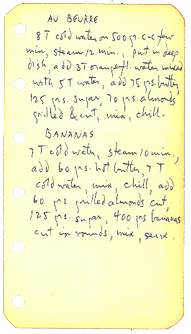 AU BEURRE
8 T cold water on 500 gr. c-c few
min, steam 12 min, put in deep
dish, add 3T orange fl. water mixed
with 5T water, add 75 grs butter,
125 grs. sugar 70 grs. almonds
grilled & cut, mix, chill.
BANANAS
7 T cold water, steam 10 min,
add 60 grs. hot butter, 7 T
cold water, mix, chill, add
60 grs. grilled almonds cut,
125 grs. sugar, 400 grs bananas
cut in rounds, mix, serve.